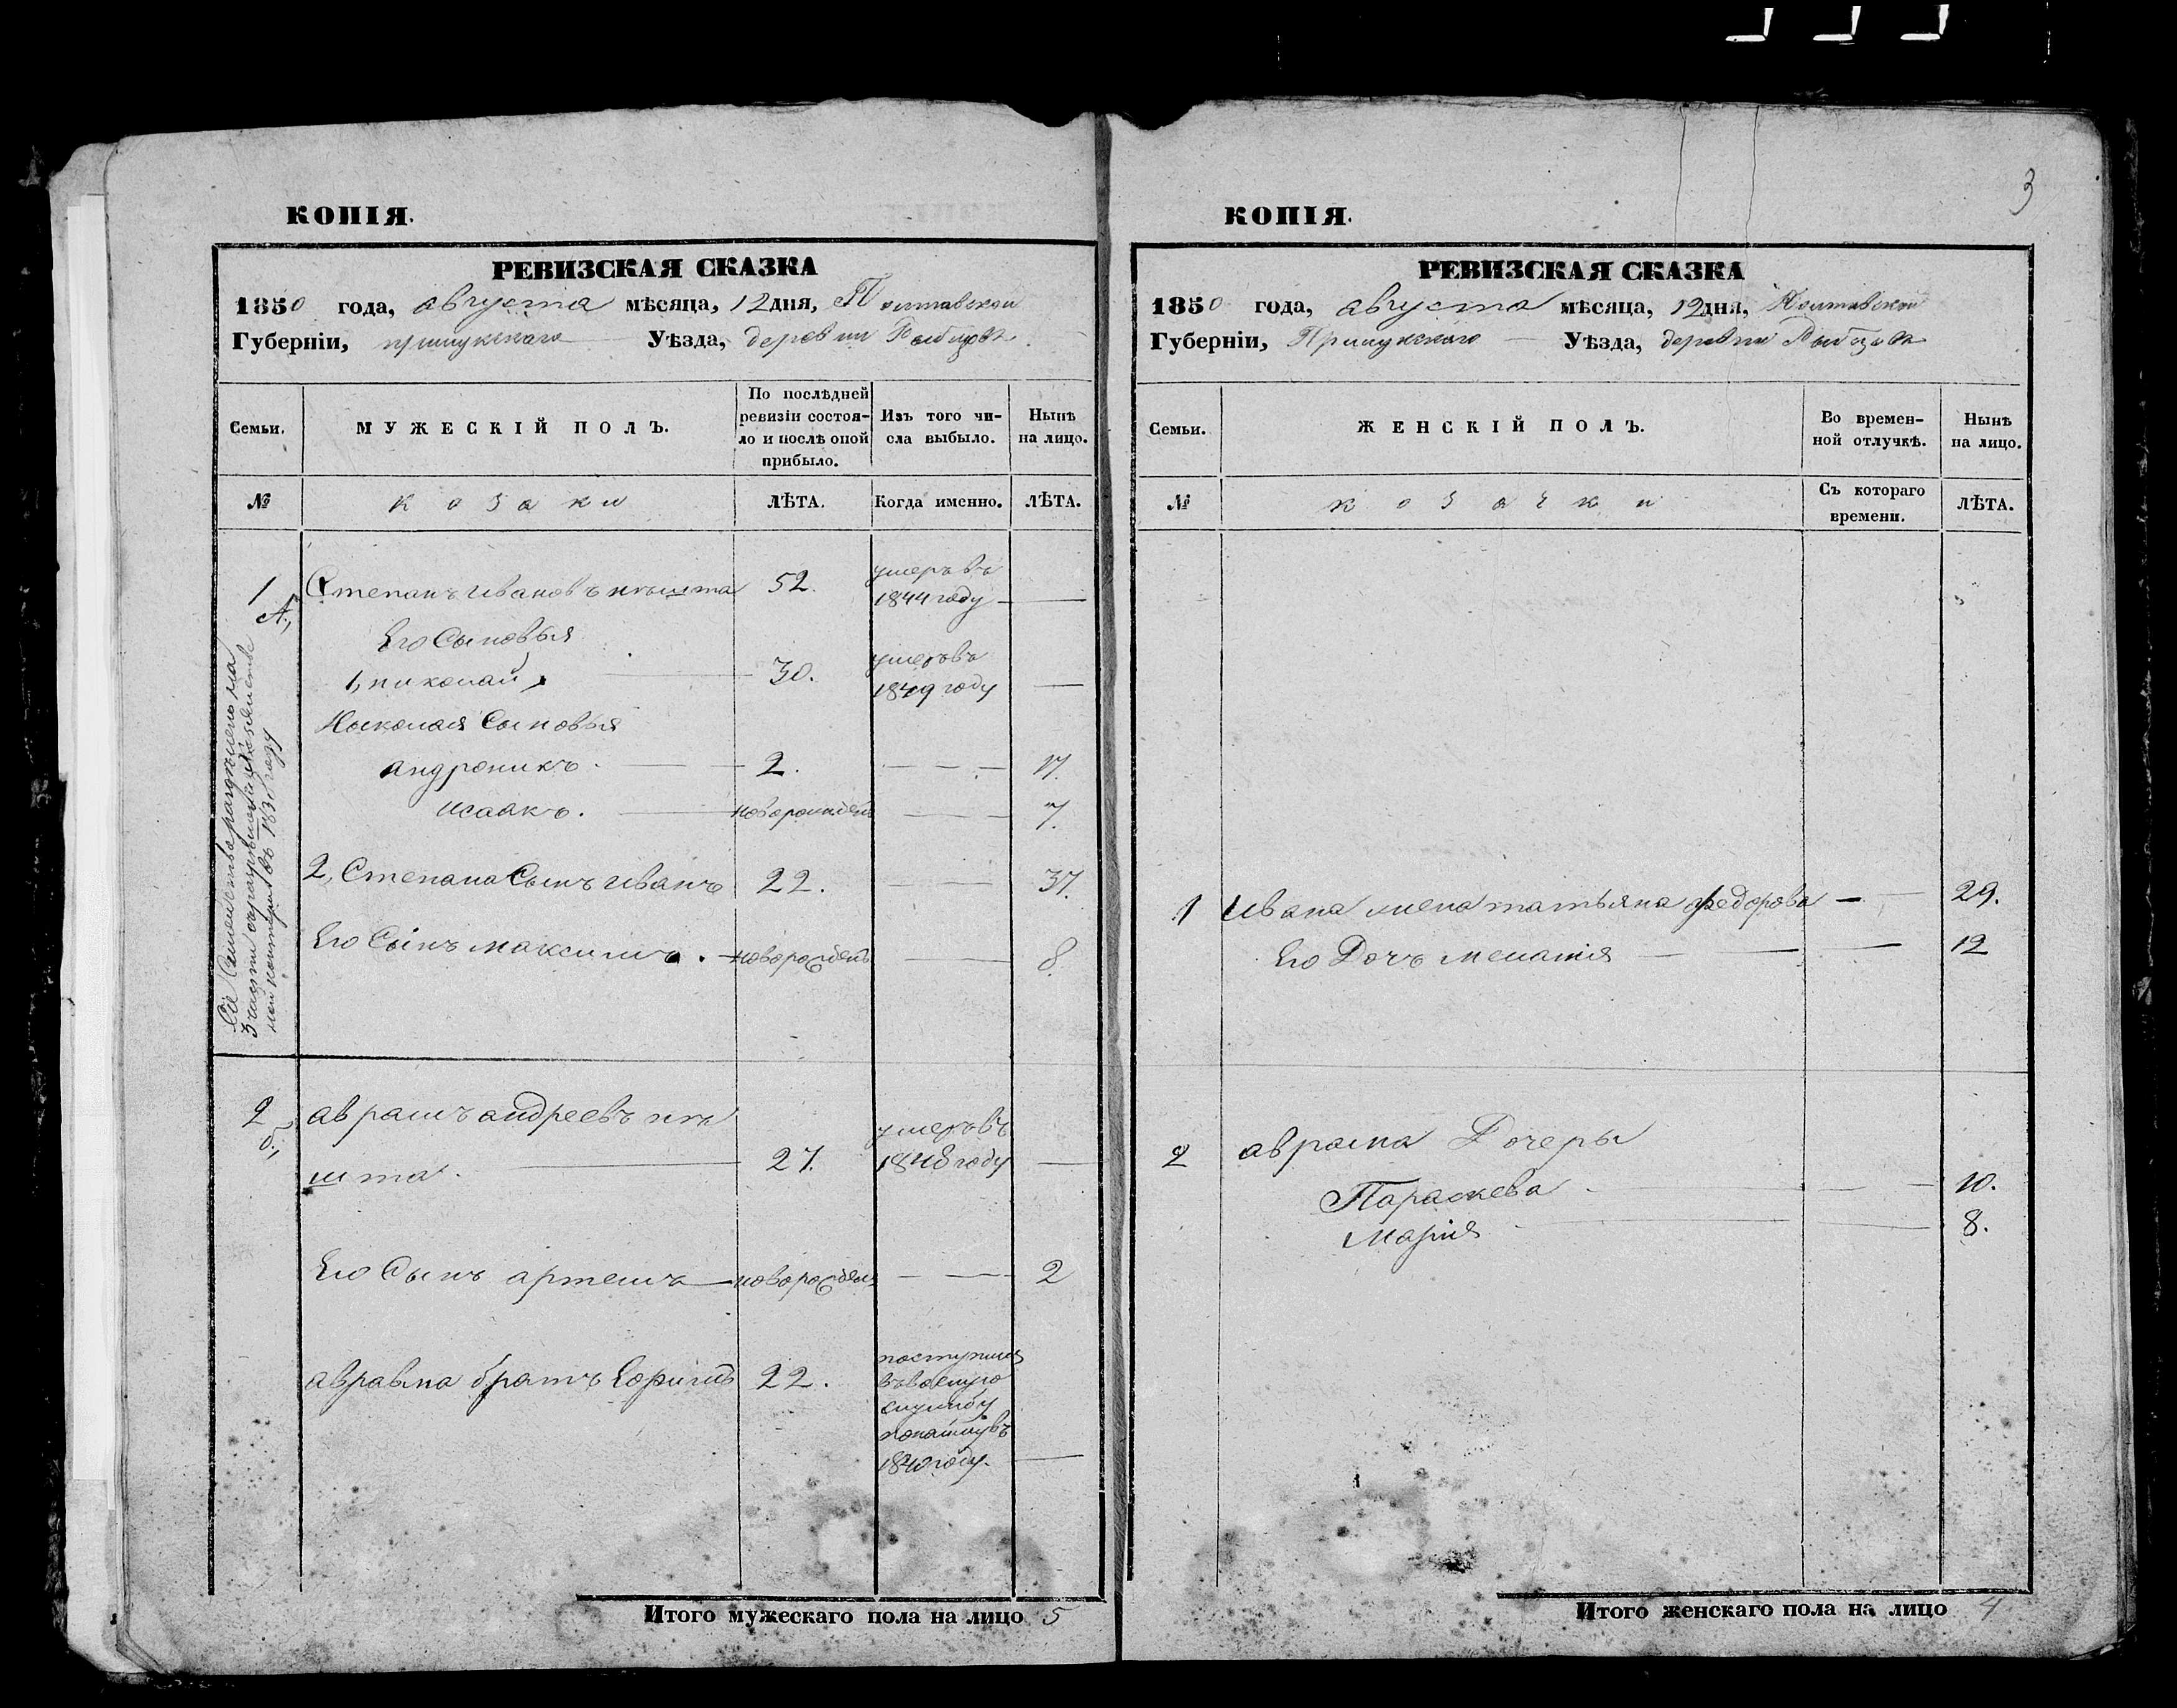 3
КОПІЯ.
РЕВИЗСКАЯ СКАЗКА
1850 года, августа мѣсяца, 12 дня, Полтавской
Губерніи, прилукскаго Уѣзда, деревни
Семьи.
МУЖЕСКІЙ ПОЛЪ.
По послѣдней
ревизіи состоя-
ло и послѣ оной
прибыло.
Изъ того чи-
сла выбыло.
Нынѣ
на лицо.
№
козаки
ЛѢТА.
Когда именно.
ЛѢТА.
1 Степанъ Ивановъ 52. умеръ въ
А, 1844 году
Его Сыновья
1, николай 30. умеръ въ
1849 году
Николая Сыновья
андроникъ. 2. 17.
исаакъ. новорожденъ 7.
2, Степана Сынъ иванъ 22. 37.
Его Сынъ максимъ. новорожденъ 8.
Сіе Семейство
въ году
2 аврамъ андреевъ
б, умеръ въ
шта. 27. 1848 году
Его Сынъ артемъ новорожден 2
аврама братъ Ефимъ 22. поступилъ
въ военную
службу
1840 году.
Итого мужескаго пола на лицо 5
КОПІЯ.
РЕВИЗСКАЯ СКАЗКА
1850 года, августа мѣсяца, 12 дня, Полтавской
Губерніи, Прилукскаго Уѣзда, деревни
Семьи.
ЖЕНСКІЙ ПОЛЪ.
Во времен-
ной отлучкѣ.
Нынѣ
на лицо.
№
козачки
Съ котораго
времени.
ЛѢТА.
1 Ивана жена татьяна федорова 29.
Его Дочъ 12
2 аврама Дочеры
Параскева 10.
Марія 8.
Итого женскаго пола на лицо 4